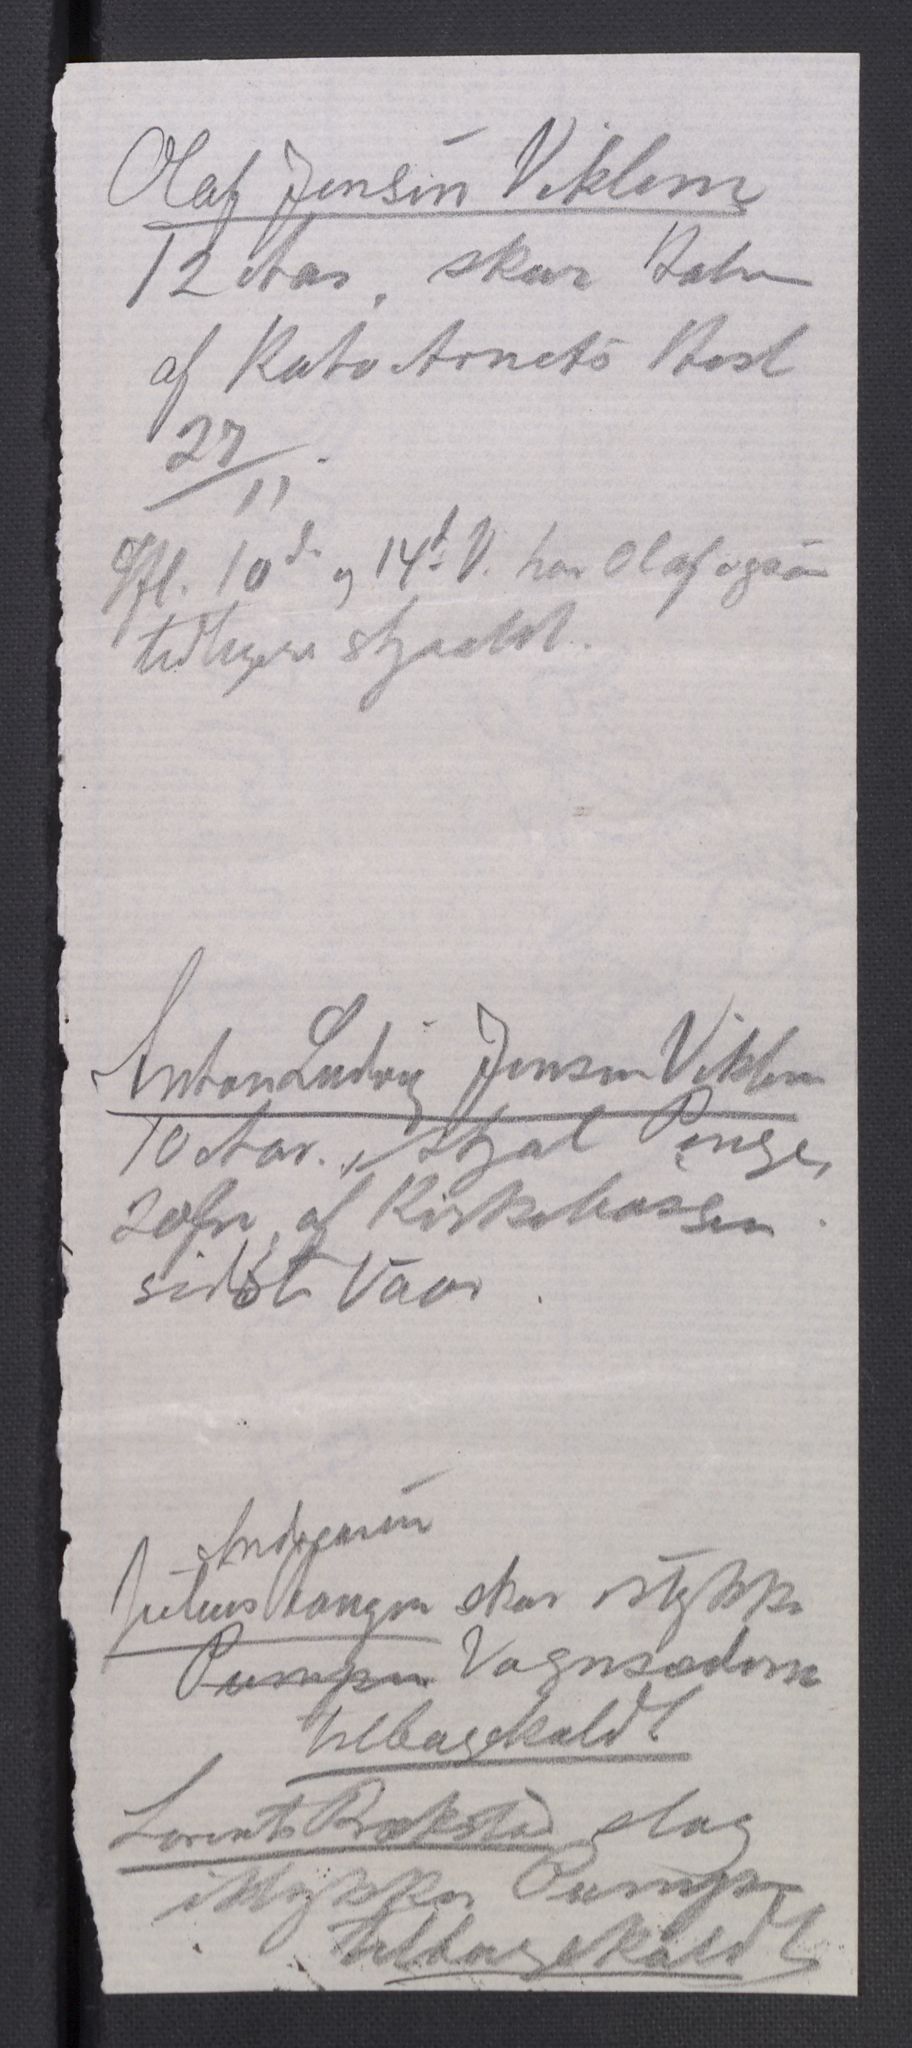 Olaf Jensen Viklem
12 Aar, skar Halen
af Kato Arnets Hest
27/11.
Ifl. 10d. og 14d. V. har Olaf ogsaa
tidligere stjaalet.
Anton Ludvig Jensen Viklem
10 Aar., stjal Penge,
20 kr, af Kirkebøssen
sidste Vaar.
Andersen
Julius Tangen skar istykker
Pumpen Vognsæderne
tilbagekaldt
Lorents Rækstad slog
istykker Pumpen
tilbagekaldt